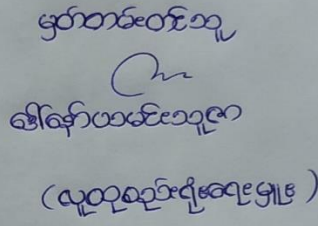 မှတ်တမ်းတင်သူ
ဒေါ်နော်ယမင်းသူဇာ
(လူထုစည်းရုံးရေးမှူး)